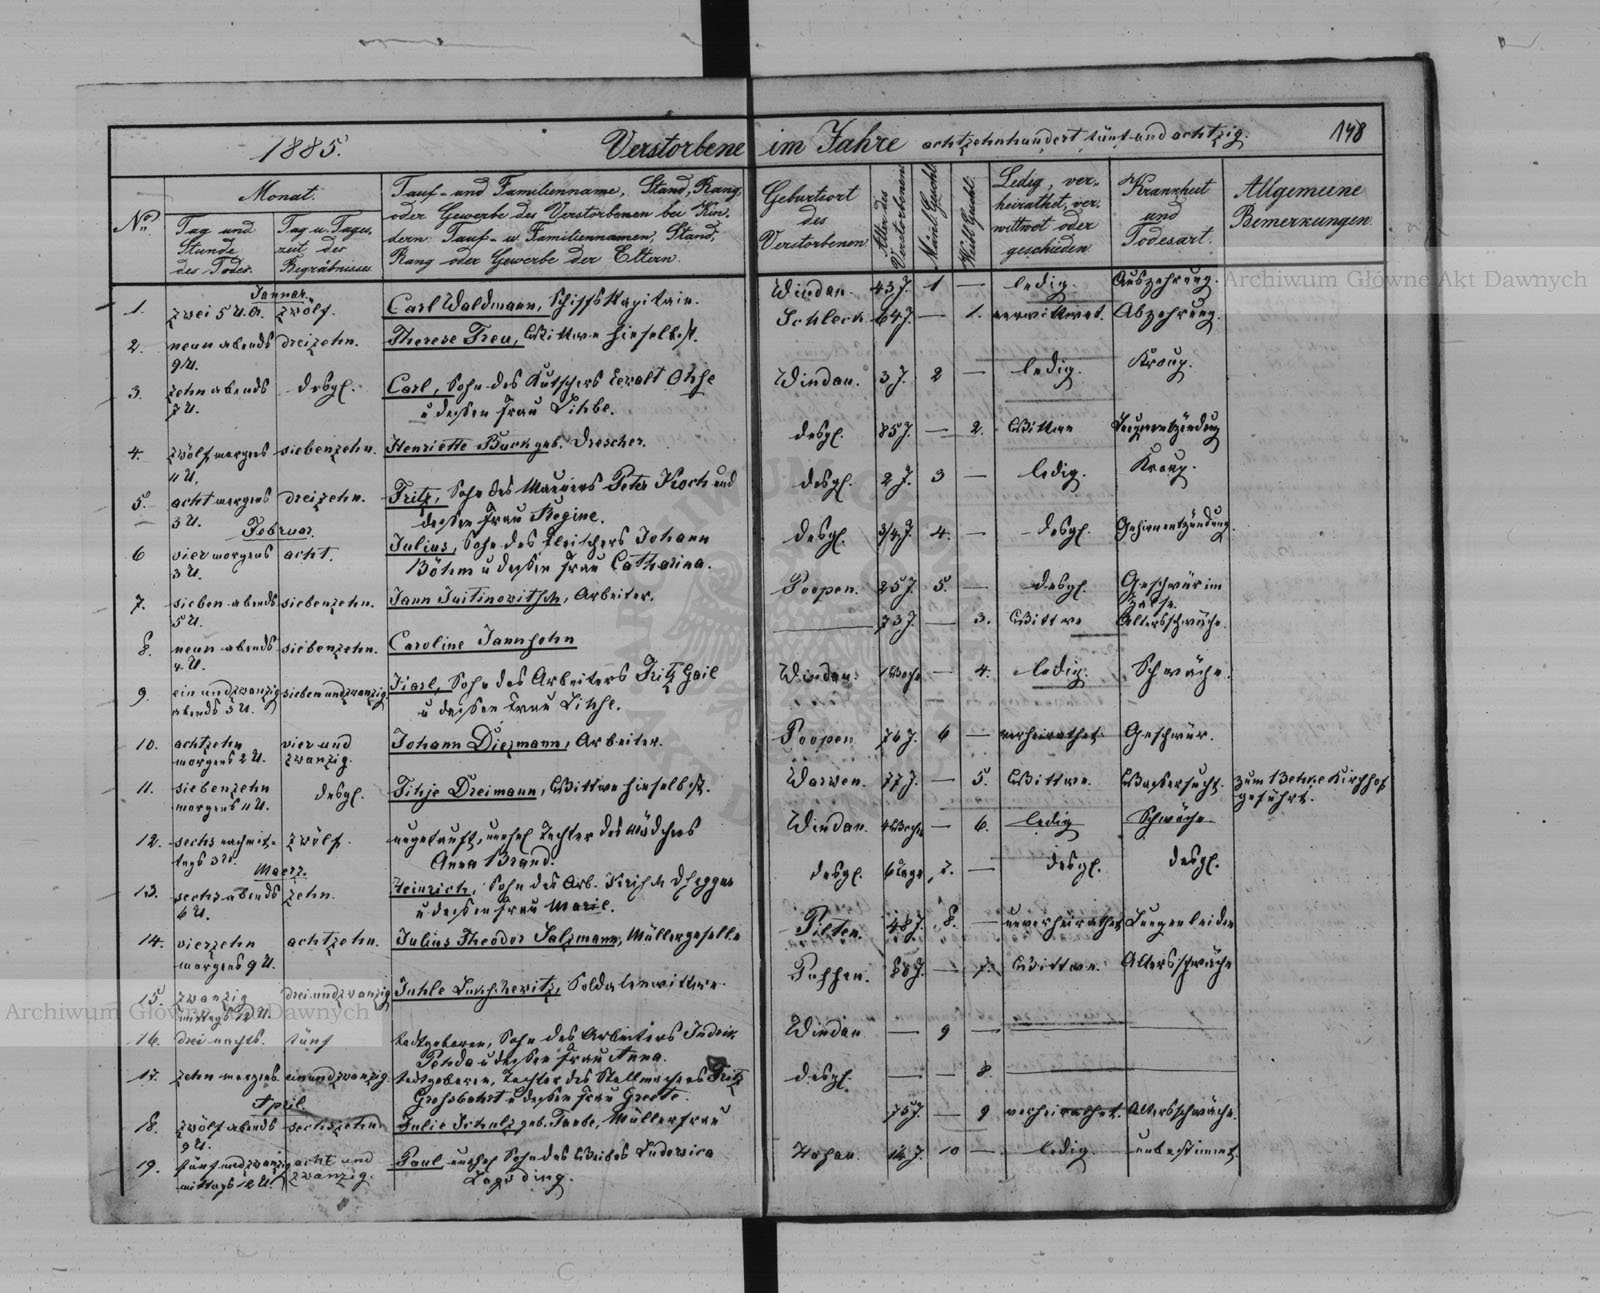 1885. Verstorbene im Jahre achtzehnhundert fünf und achtzig. 148
No. Monat.
Tag und Stunde des Todes.
Tag u. Tageszeit des Begräbnisses.
Tauf- und Familienname, Stand, Rang,
oder Gewerbe des Verstorbenen bei Kin-
dern: Tauf- u Familiennamen, Stand,
Rang oder Gewerbe der Eltern.
Geburtsort des Verstorbenen
Alter des Verstorbenen
Männl. Geschl.
Weibl. Geschl.
Ledig, ver-
heirathet, ver-
wittwet oder
geschieden
Krankheit und Todesart.
Allgemeine Bemerkungen
Januar.
1. zwei 5 U. zwölf. Carl Waldmann, Schiffs Kapitain. Windau. 43 J. 1 — ledig. Auszehrung.
2. neun abends dreizehn. Therese Freu, Wittwe hieselbst. Schleck 64 J. — 1. verwittwet. Abzehrung.
9 U.
3. zehn abends desgl. Carl, Sohn des Kutschers Ewalt Ohse Windau. 3 J. 2 — ledig. Kroup.
7 U. u dessen Frau Lihbe.
4. zwölf morgens siebenzehn. Henriette Buck geb. Drescher. desgl. 85 J. — 2. Wittwe Lungenentzündung
11 U.
5. acht morgens dreizehn. Fritz, Sohn des Maurers Peter Koch und desgl. 2 J. 3 — ledig. Kroup.
3 U. dessen Frau Regine.
Februar.
6 vier morgens acht. Julius, Sohn des Fleischers Johann desgl. 3/4 J. 4. — desgl. Gehirnentzündung.
3 U. Böhm u dessen Frau Catharina.
7. sieben abends siebenzehn. Jann Justinowitsch, Arbeiter. Poopen. 25 J. 5. — desgl. Geschwür im
5 U. Halse.
8. neun abends siebenzehn. Caroline Jannsohn — 73 J. — 3. Wittwe Altersschwäche.
4 U.
9. ein und zwanzig sieben und zwanzig Karl, Sohn des Arbeiters Fritz Gail Windau. 1 Woche — 4. ledig. Schwäche.
abends 3 U. u dessen Frau Lihse.
10. achtzehn vier und Johann Diezmann, Arbeiter. Poopen 76 J. 6 — verheirathet. Geschwür.
morgens 2 U. zwanzig.
11. siebenzehn desgl. Tihje Dreimann, Wittwe hieselbst. Warwen. 77 J. — 5. Wittwe. Wassersucht. zum Behrse Kirchhof
morgens 11 U. geführt.
12. sechs nachmit- zwölf. ungetauft, unehel Tochter des Mädchens Windau 4 Woche — 6. ledig Schwäche
tags 3 U. Anna Brand.
Maerz.
13. sechs abends zehn. Heinrich, Sohn des Arb. Krisch desgl. 6 Tage 7. — desgl. desgl.
6 U. u dessen Frau Marie.
14. vierzehn achtzehn. Julius Theodor Salzmann, Müllergeselle Pilten. 48 J. 8. — unverheirathet Lungenleiden
morgens 9 U.
15. zwanzig drei und zwanzig Juhle, Soldatenwittwe. Puhsen. 88 J. — 7. Wittwe. Altersschwäche
mittags 12 U.
16. drei nachts. fünf todtgeboren, Sohn des Arbeiters Indrik Windau — 9 —
Pohda u dessen Frau Anna.
17. zehn morgens ein und zwanzig. todtgeboren, Tochter des Stellmachers Fritz desgl. — — 8.
Grohsbahrt u dessen Frau Greete.
April
18. zwölf abends sechszehn Julie Schulz geb. Taube, Müllerfrau 75 J. — 9 verheirathet. Altersschwäche.
9 U.
19. fünf und zwanzig acht und Paul unehel Sohn des Weibes Ludowica Hasau. 14 J. 10 — ledig. unbestimmt
mittags 12 U. zwanzig. Lapsding.
Archiwum Główne Akt Dawnych
Archiwum Główne Akt Dawnych